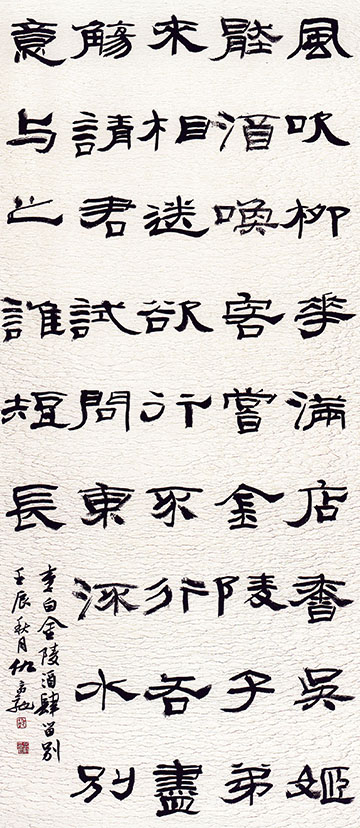 風吹柳花滿店香吳姬
壓酒喚客嘗金陵子弟
來相送欲行不行各盡
觴請君試問東流水別
意与之誰短長
李白金陵酒肆留別
壬辰秋月